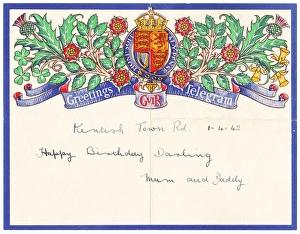 Greetings Telegram
GviR
Kentish Town Rd. 1-4-42
Happy Birthday Darling
Mum and Daddy